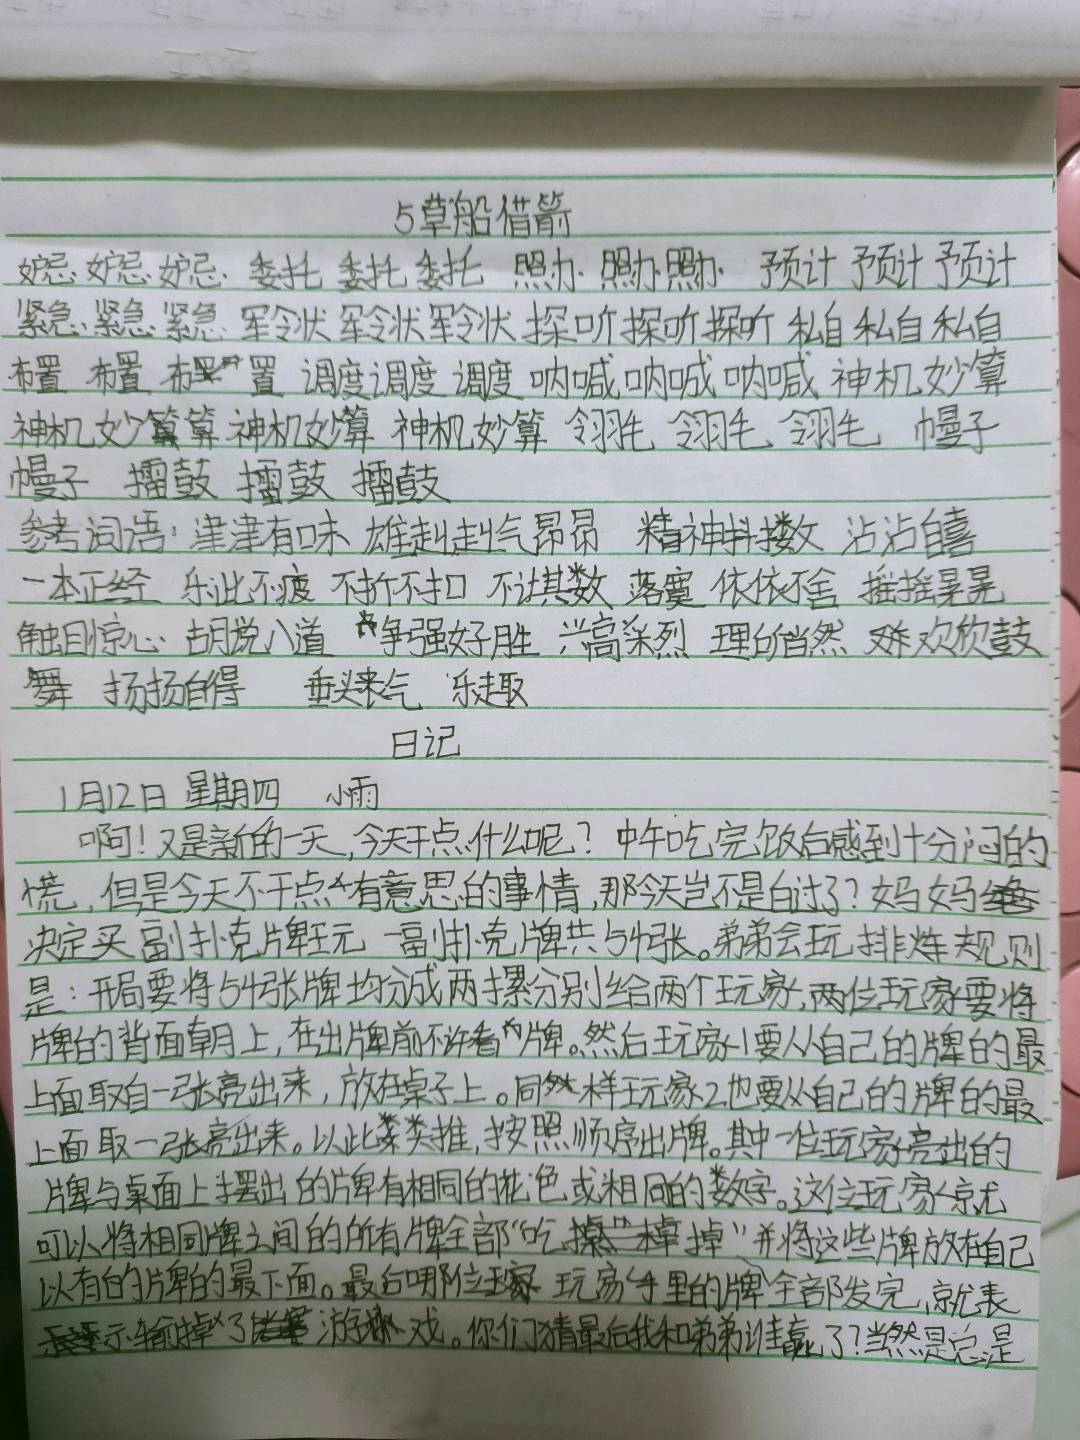 5草船借箭
妒忌 妒忌 妒忌 委托 委托 委托 照办 照办 照办 预计 预计 预计
紧急 紧急 紧急 军令状 军令状 军令状 探听 探听 探听 私自 私自 私自
布置 布置 布置 调度 调度 调度 呐喊 呐喊 呐喊 神机妙算
神机妙算 神机妙算 神机妙算 翎毛 翎毛 翎毛 幔子
幔子 擂鼓 擂鼓 擂鼓
参考词语：津津有味 雄赳赳气昂昂 精神抖擞 沾沾自喜
一本正经 乐此不疲 不折不扣 不计其数 落寞 依依不舍 摇摇晃晃
触目惊心 胡说八道 争强好胜 兴高采烈 理所当然 欢欣鼓
舞 扬扬自得 垂头丧气 乐趣
日记
1月12日 星期四 小雨
啊！又是新的一天，今天干点什么呢？中午吃完饭后感到十分闷的
慌，但是今天不干点有意思的事情，那今天岂不是白过了？妈妈
决定买副扑克牌玩 一副扑克牌共54张。弟弟会玩排炸规则
是：开局要将54张牌均分成两摞分别给两个玩家，两位玩家要将
牌的背面朝上，在出牌前不许看牌。然后玩家1要从自己的牌的最
上面取自一张亮出来，放在桌子上。同样玩家2也要从自己的牌的最
上面取一张亮出来。以此类推，按照顺序出牌。其中一位玩家亮出的
牌与桌面上摆出的牌有相同的花色或相同的数字。这位玩家就
可以将相同牌之间的所有牌全部“吃掉”并将这些牌放在自己
以有的牌的最下面。最后哪位玩家手里的牌全部发完，就表
示输掉了游戏。你们猜最后我和弟弟谁赢了？当然是总是